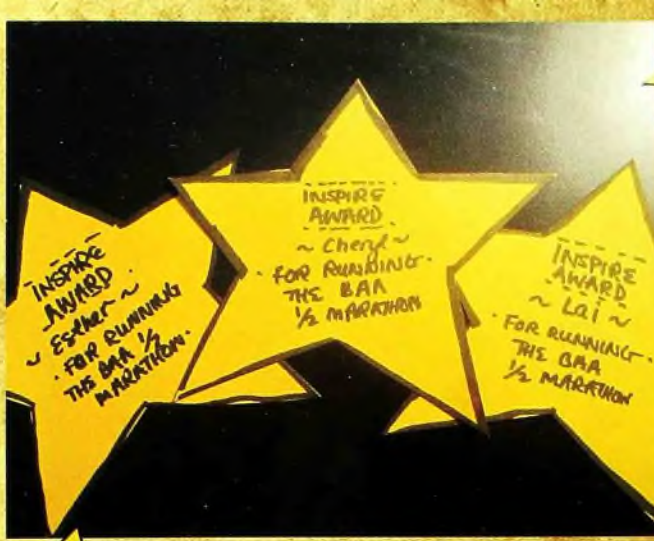 INSPIRE
AWARD
~ Esther ~
· FOR RUNNING
THE BAA 1/2
MARATHON ·
INSPIRE
AWARD
~ Cheryl ~
· FOR RUNNING ·
THE BAA
1/2 MARATHON
INSPIRE
AWARD
~ Lai ~
· FOR RUNNING ·
THE BAA
1/2 MARATHON